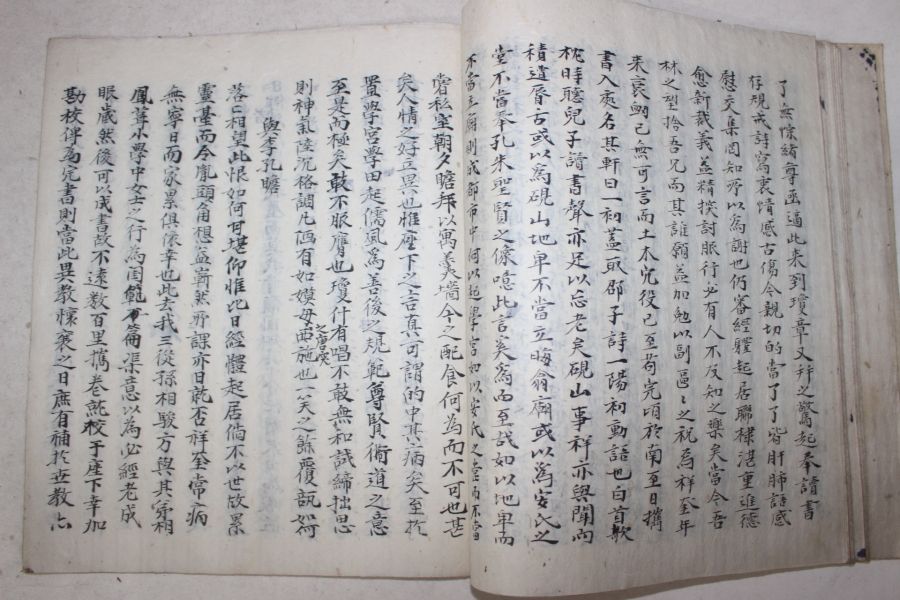 了無懷緖尊函適此來到瓊章又拜之驚起奉讀書
存規戒詩寫衷情感古傷今親切的當了了皆肝肺語感
慰交集罔知所以爲謝也仍審經體起居聯棣湛重進德
愈新裁義益精探討服行必有人不反知之樂矣當今吾
林之望捨吾兄而其誰願益加勉以副區〻之祝爲祥至年
來衰劬已無可言而土木宂役已至苟完頃於南至日搆
書入處名其軒曰一初蓋取邵子詩一陽初動語也白首欹
枕時聽兒子讀書聲亦足以忘老矣硯山事祥亦與聞而
積遝唇古或以爲硯山地卑不當立晦翁廟或以爲安氏之
堂不當奉孔朱聖賢之像噫此言奚爲而至哉如以地卑而
不當立廟則成都市中何以起學宮如以安氏之堂而不當
嘗私室朝夕瞻拜以寓羹墻今之配食何爲而不可也甚
矣人情之好立異也惟座下之言眞可謂的中其病矣至於
置學宮學田起儒風爲善後之規範尊賢衛道之意
至矣而極矣敢不服膺也瓊什有唱不敢無和試締拙思
則神氣陸沉格調凡陋有如嫫母西施也一笑之餘覆瓿如何
之唐突
與李孔瞻
落落相望此恨如何可堪仰惟此日經體起居倘不以世故累
靈臺而令胤頭角想益嶄然所課亦日就否祥至常病
無寧日而家累俱依幸也此去我三從孫相駿方與其窮相
鳳葺小學中女士之行爲閨範分篇渠意以爲必經老成
眼歲然後可以成書故不遠數百里擕卷就校于座下幸加
勘校俾爲完書則當此異敎懷襄之日庶有補於世敎亦